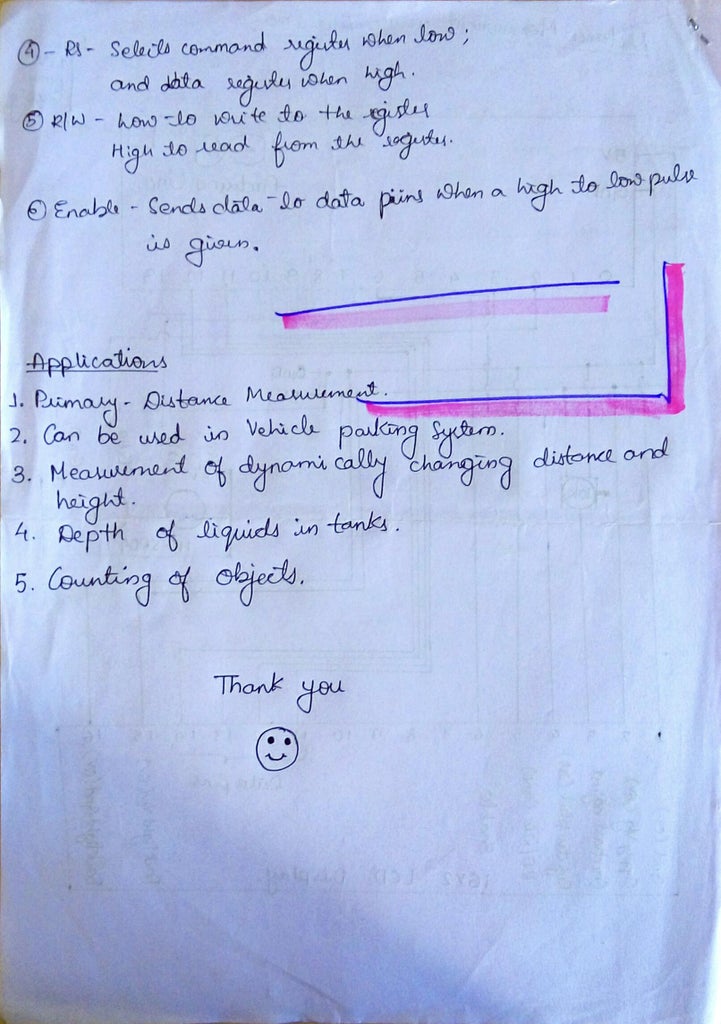 ④ - RS - Selects command register when low;
and data register when high.
⑤ R/W - Low to write to the register
High to read from the register.
⑥ Enable - Sends data to data pins when a high to low pulse
is given.
Applications
1. Primary - Distance Measurement.
2. Can be used in Vehicle parking System.
3. Measurement of dynamically changing distance and
height.
4. Depth of liquids in tanks.
5. Counting of objects.
Thank you
16x2 LCD Display